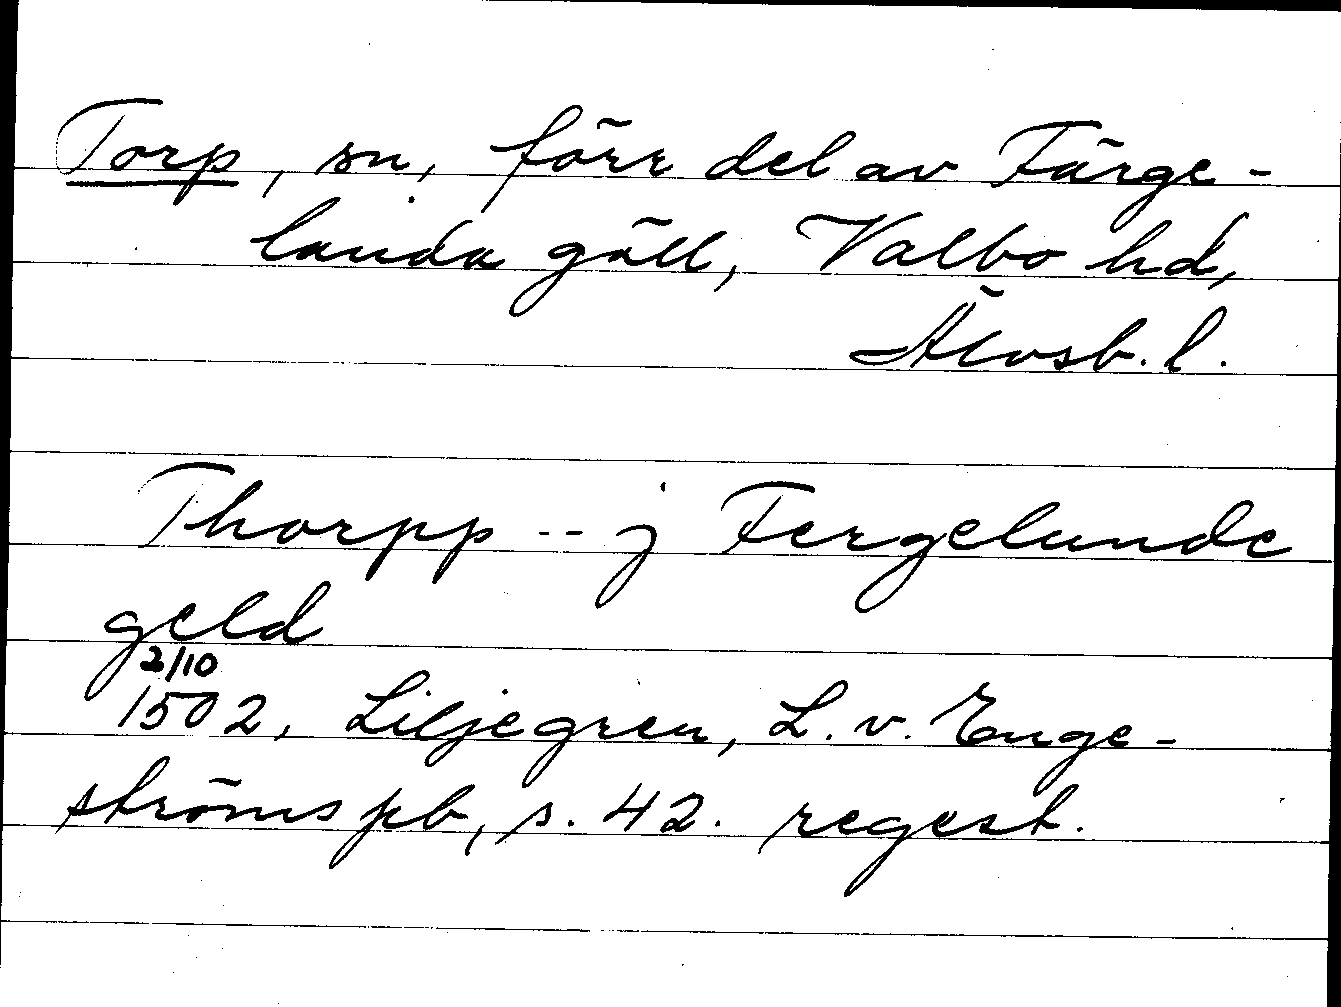 Torp, sn, förr del av Färge-
landa gäll, Valbo hd,
Älvsb. l.
Thorpp -- j Fergelunde
geld
2/10
1502, Liljegren, L. v. Enge-
ströms pb, s. 42. regest.